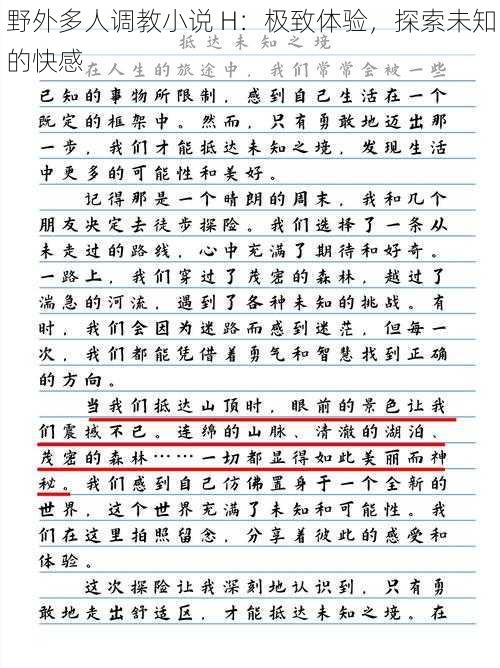 野外多人调教小说 H：极致体验，探索未知
的快感
抵达未知之境
在人生的旅途中，我们常常会被一些
已知的事物所限制，感到自己生活在一个
既定的框架中。然而，只有勇敢地迈出那
一步，我们才能抵达未知之境，发现生活
中更多的可能性和美好。
记得那是一个晴朗的周末，我和几个
朋友决定去徒步探险。我们选择了一条从
未走过的路线，心中充满了期待和好奇。
一路上，我们穿过了茂密的森林，越过了
湍急的河流，遇到了各种未知的挑战。有
时，我们会因为迷路而感到迷茫，但每一
次，我们都能凭借着勇气和智慧找到正确
的方向。
当我们抵达山顶时，眼前的景色让我
们震撼不已。连绵的山脉、清澈的湖泊、
茂密的森林……一切都显得如此美丽而神
秘。我们感到自己仿佛置身于一个全新的
世界，这个世界充满了未知和可能性。我
们在这里拍照留念，分享着彼此的感受和
体验。
这次探险让我深刻地认识到，只有勇
敢地走出舒适区，才能抵达未知之境。在